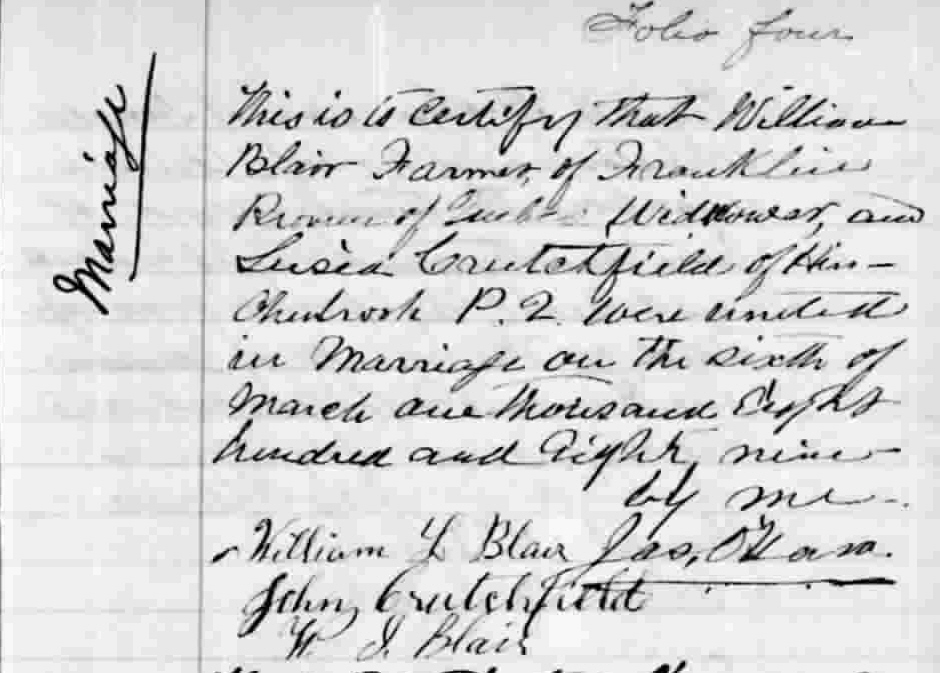 Folio four
Marriage
This is to Certify that William
Blair Farmer, of Franklin
of Widower, and
Crutchfield of Hin-
chinbrook P.Q. were united
in Marriage on the sixth of
March one thousand Eight
hundred and Eighty nine
by me.
William Y Blair Jas,
John Crutchfield
W. J. Blair